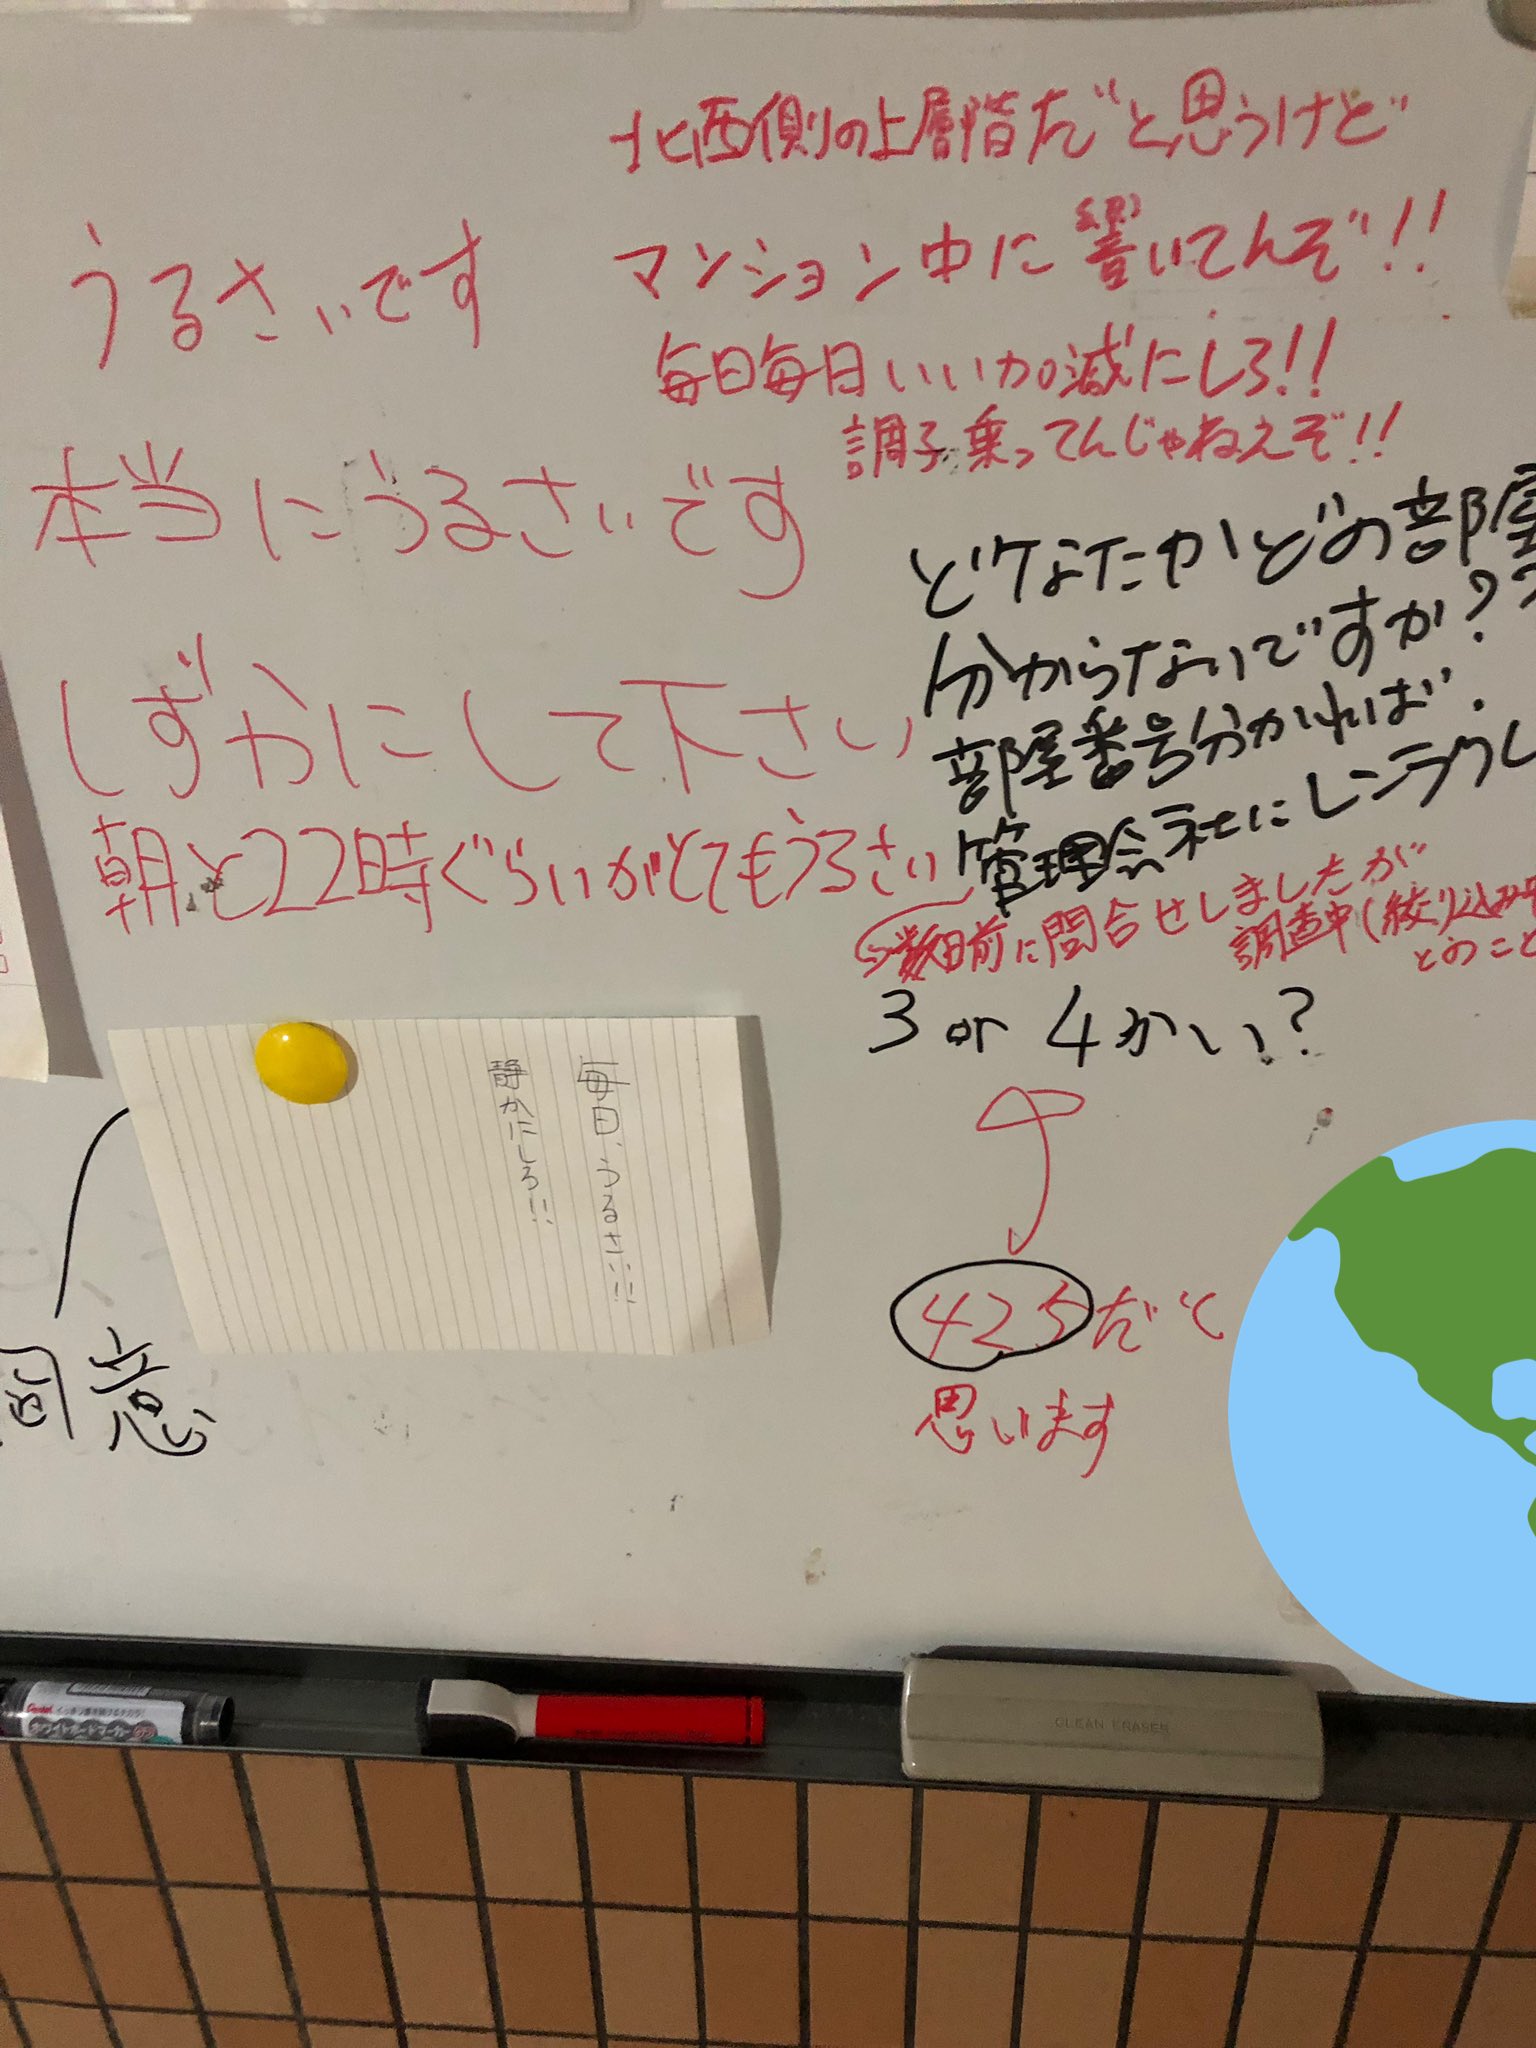 北西側の上層階だと思うけど
マンション中に響いてんぞ!!
毎日毎日いい加減にしろ!!
調子乗ってんじゃねえぞ!!
うるさいです
本当にうるさいです
しずかにして下さい
朝と22時ぐらいがとてもうるさい
どなたかどの部屋
分からないですか?
部屋番号分かれば
管理会社にレンラクし
数日前に問合せしましたが
調査中(絞り込み中
とのこと
3 or 4かい?
425だと
思います
毎日、うるさい!!
静かにしろ!!
同意
Pentel
ホワイトボードマーカー
CLEAN ERASER